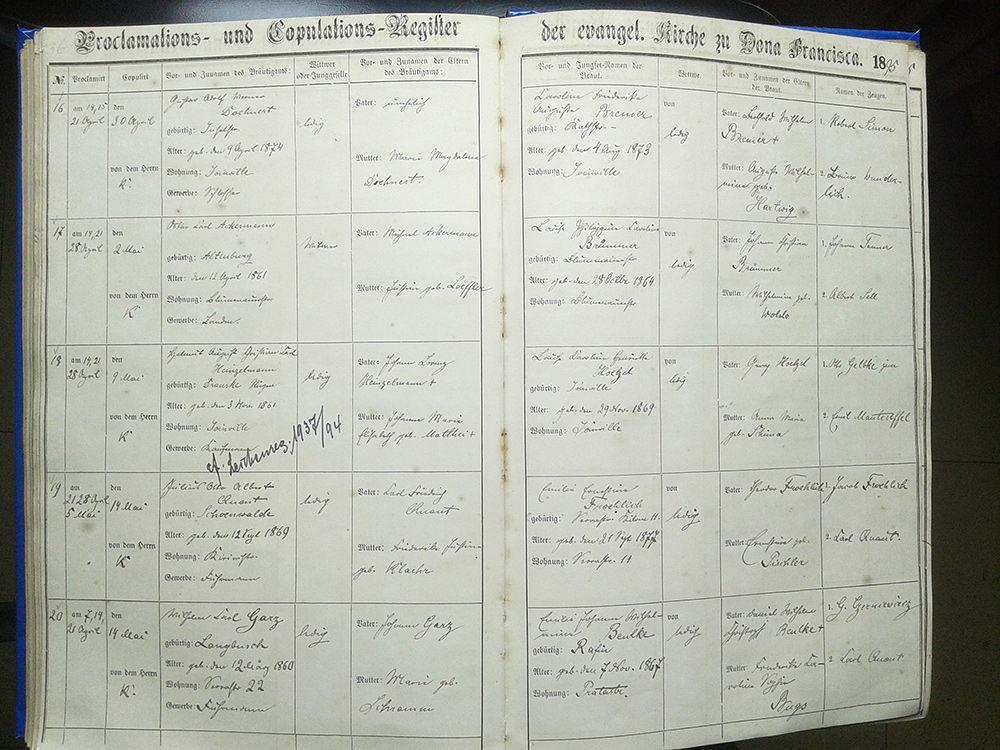 Proclamations- und Copulations-Register der evangel. Kirche zu Dona Francisca. 1895
№ Proclamirt Copulirt Vor- und Zunamen des Bräutigams: Wittwer oder Junggeselle Vor- und Zunamen der Eltern des Bräutigams: Vor- und Jungfer-Namen der Braut. Wittwe Vor- und Zunamen der Eltern der Braut. Namen der Zeugen.
16 am 14, 15 den Gustav Adolf Vater: unehelich Caroline Friederike von Vater: Wilhelm 1. Robert Simon
21 April 30 April Dochnert ledig Auguste Bremer ledig Bremer +
gebürtig: gebürtig:
Alter: geb. den 9 April 1874 Mutter: Marie Magdalena Alter: geb. den 4 Aug 1873 Mutter: Auguste Wilhel-
von dem Herrn Wohnung: Joinville Dochnert. Wohnung: Joinville mine geb. 2. Bruno Wunder-
K. Gewerbe: Schlosser Hartwig lich.
17 am 14, 21 den Otto Carl Ackermann Vater: Michael Ackermann Louise Philippine Caroline von Vater: Johann Christian 1. Johann
28 April 2 Mai Wittwer Brümmer ledig Brümmer
gebürtig: Altenburg gebürtig:
Alter: den 12 April 1861 Mutter: geb. Loeffler Alter: geb. den 28 Octbr 1864 Mutter: Wilhelmine geb. 2. Albert Sell
von dem Herrn Wohnung: Wohnung:
K Gewerbe: Landm.
18 am 14, 21 den Helmut August Christian Carl Vater: Johann Louise Caroline Henriette von Vater: Georg Hoetzel 1. Otto Gelbke jun
28 April 9 Mai Heinzelmann ledig Heinzelmann + Hoetzel ledig
gebürtig: gebürtig: Joinville
Alter: geb. den 3 Nov. 1861 Mutter: Johanna Marie Alter: geb. den 29 Nov. 1869 Mutter: Anna Maria 2. Emil Manteuffel
von dem Herrn Wohnung: Joinville Elisabeth geb. Matthei + Wohnung: Joinville geb.
K Gewerbe: Kaufmann
1937/94
19 am den Julius Otto Albert Vater: Carl Friedrich Emilie Ernestine von Vater: Theodor Froehlich 1. Jacob Froehlich
21 28 April 14 Mai Quant ledig Quant Froehlich ledig
5 Mai gebürtig: Schoenwalde gebürtig: Serrastr. Kilom 11.
Alter: geb. den 12 Sept 1869 Mutter: Friederike Justine Alter: geb. den 21 Sept. 1877 Mutter: Ernestine geb. 2. Carl Quant.
von dem Herrn Wohnung: geb. Klaehr Wohnung: Serrastr. 11 Pischler
K Gewerbe: Fuhrmann
20 am 7, 14, den Wilhelm Carl Garz Vater: Johann Garz Emilie Johanne Wilhel- von Vater: Daniel Wilhelm 1. G.
21 April 14 Mai ledig mine Beulke ledig Christoph Beulke +
gebürtig: Langbusch gebürtig:
Alter: geb. den 12 März 1860 Alter: geb. den 7 Nov. 1867 Mutter: Friederike Ca- 2. Carl Quant.
von dem Herrn Wohnung: Serrastr 22 Mutter: Marie geb. Wohnung: roline Sophie
K. Gewerbe: Fuhrmann Schramm Bugs